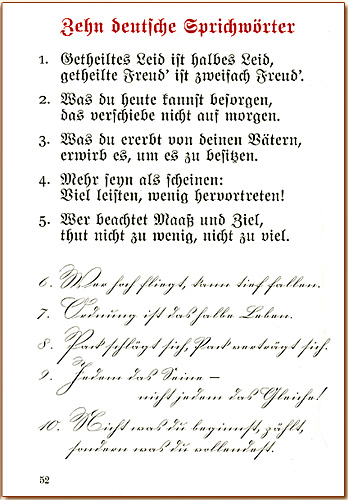 Zehn deutsche Sprichwörter
1. Getheiltes Leid ist halbes Leid,
getheilte Freud' ist zweifach Freud'.
2. Was du heute kannst besorgen,
das verschiebe nicht auf morgen.
3. Was du ererbt von deinen Vätern,
erwirb es, um es zu besitzen.
4. Mehr seyn als scheinen:
Viel leisten, wenig hervortreten!
5. Wer beachtet Maaß und Ziel,
thut nicht zu wenig, nicht zu viel.
6. Wer hoch fliegt, kann tief fallen.
7. Ordnung ist das halbe Leben.
8. Pack schlägt sich, Pack verträgt sich.
9. Jedem das Seine –
nicht jedem das Gleiche!
10. Nicht was du beginnst, zählt,
sondern was du vollendest.
52